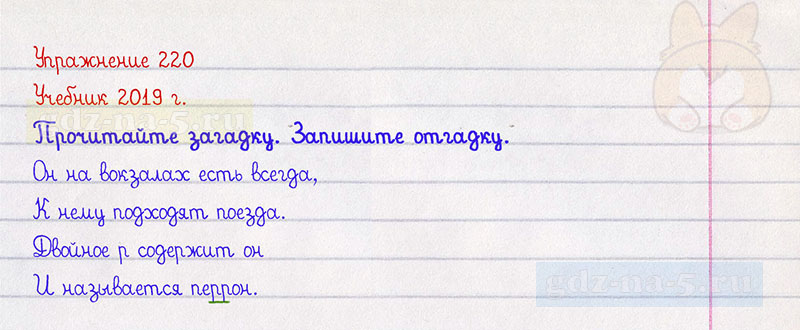 Упражнение 220
Учебник 2019 г.
gdz-na-5.ru
Прочитайте загадку. Запишите отгадку.
Он на вокзалах есть всегда,
К нему подходят поезда.
Двойное р содержит он
И называется перрон.
gdz-na-5.ru